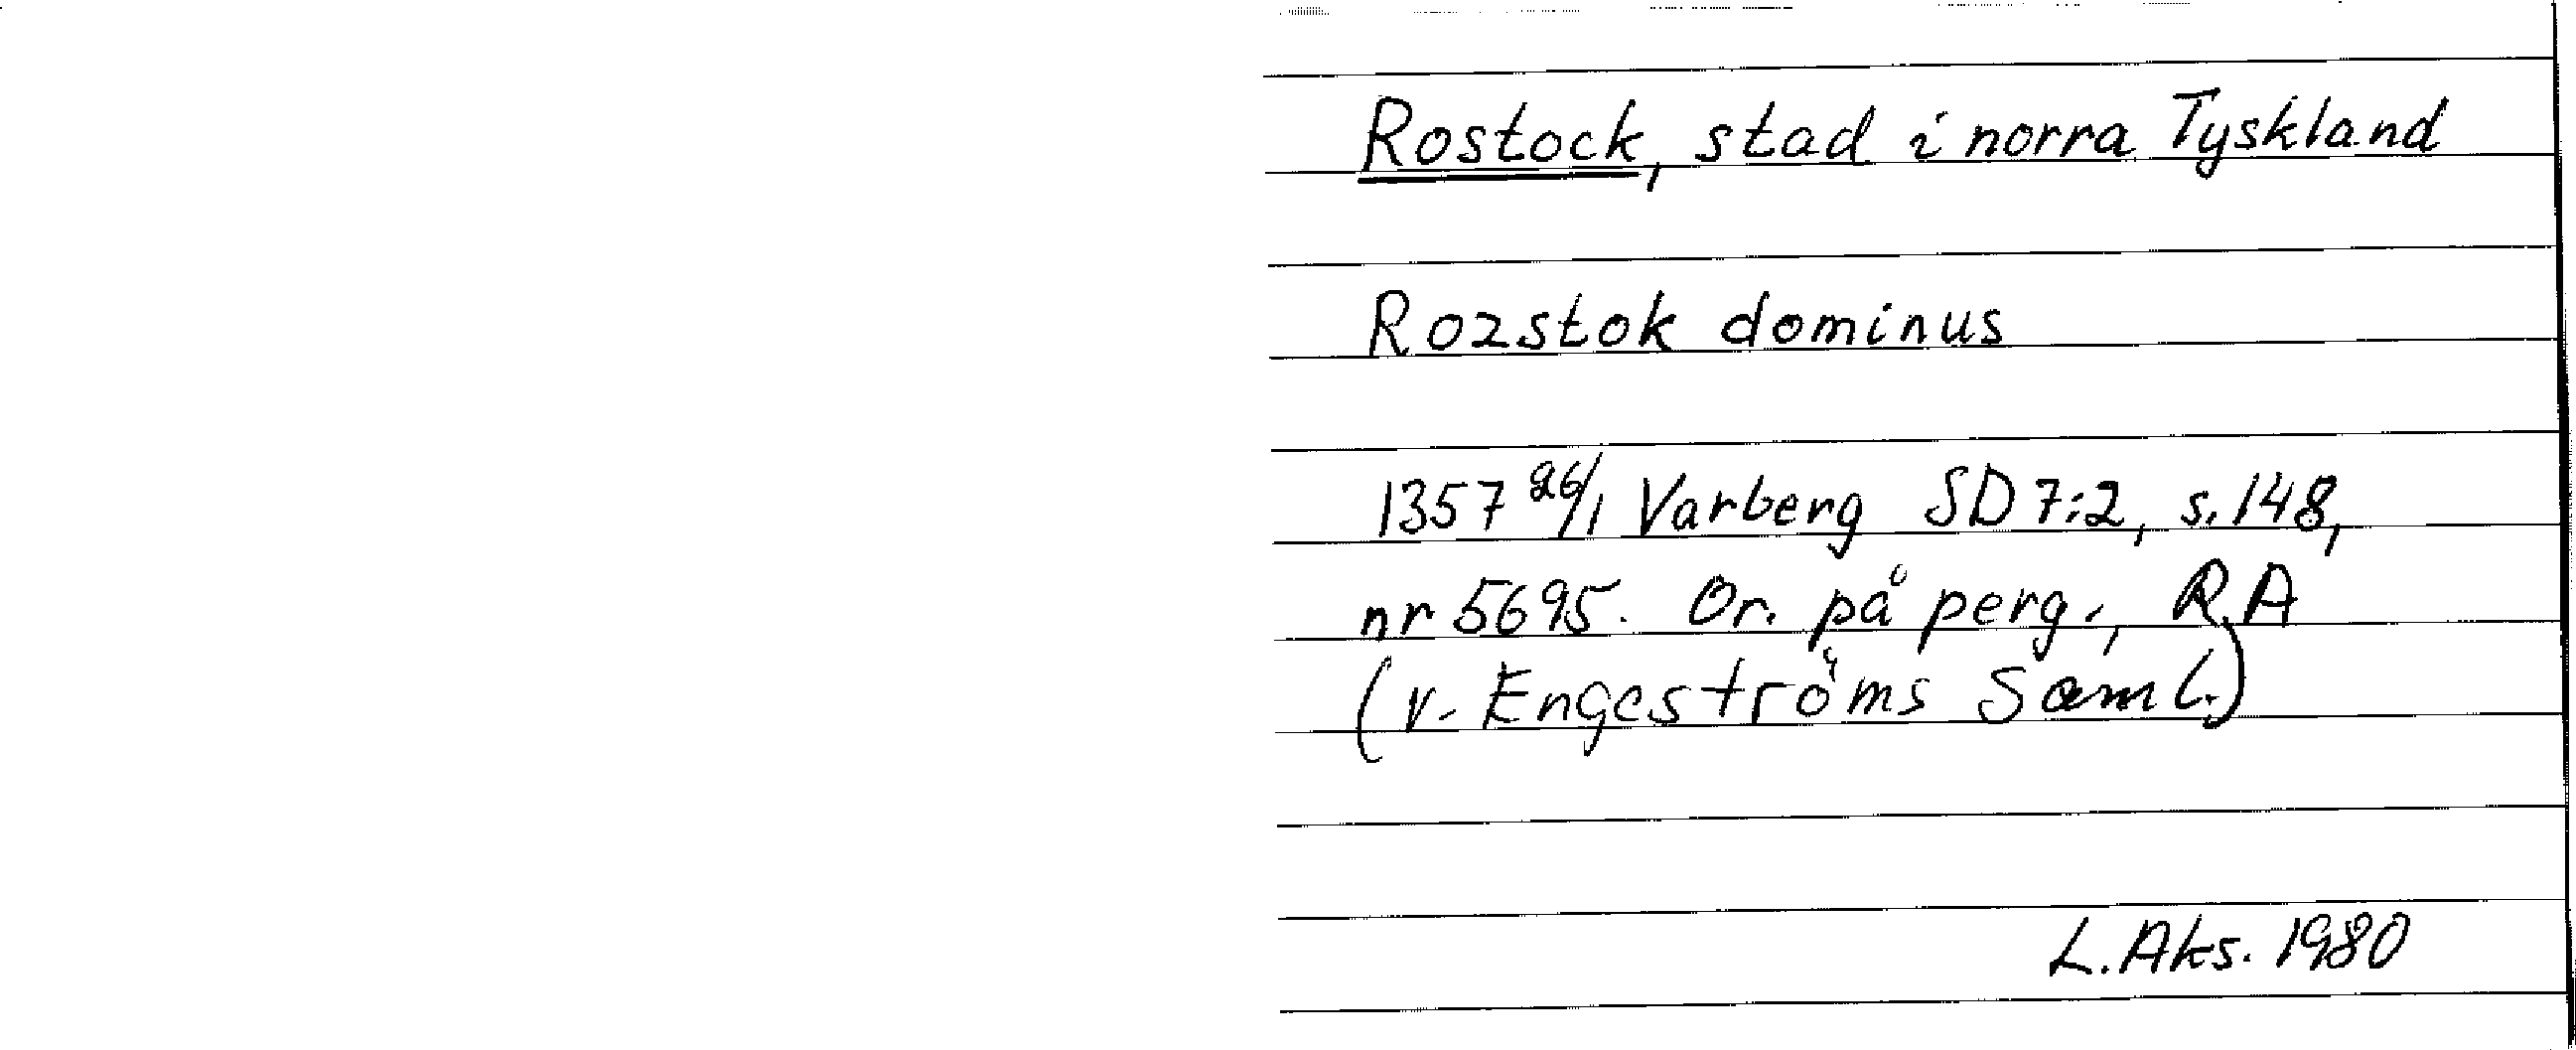 Rostock, stad i norra Tyskland
Rozstok dominus
1357 26/1 Varberg SD 7:2, s. 148,
nr 5695. Or. på perg., RA
(v. Engeströms Saml.)
L. Aks. 1980